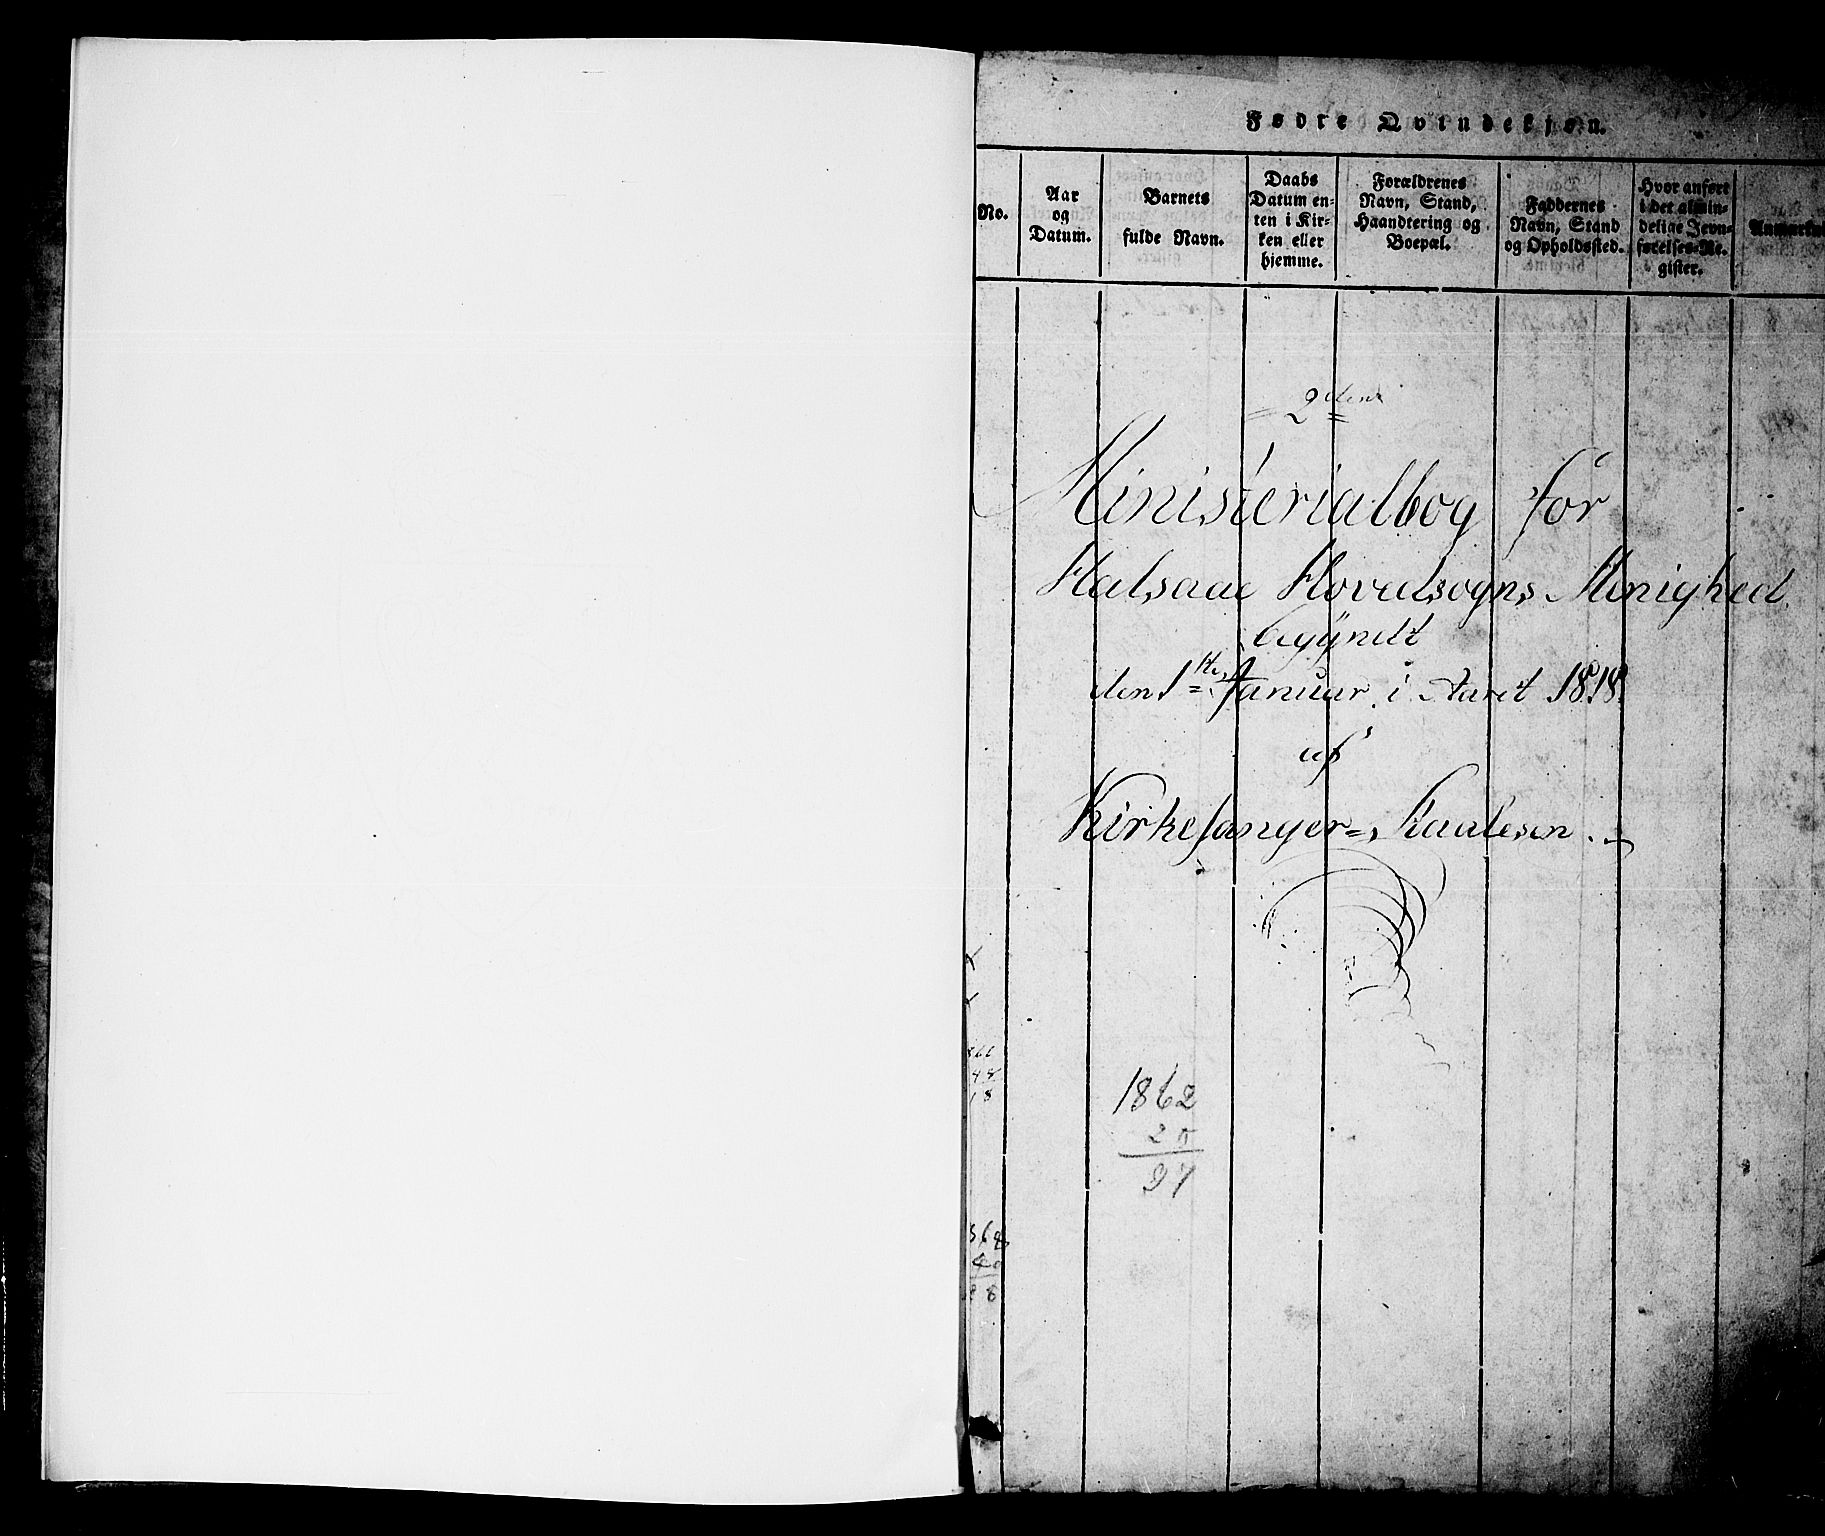 Fødre Qvindekjøn.
No.
Aar
og
Datum.
Barnets
fulde Navn.
Daabs
Datum en-
ten i Kir-
ken eller
hjemme.
Forældrenes
Navn, Stand,
Haandtering og
Boepæl.
Faddernes
Navn, Stand
og Opholdssted.
Hvor anført
i det almin-
delige Jevn-
førelses-Re-
gister.
2den
Ministerialbog for
Halsaae Hovedsogns Menighed
begyndt
den 1ste Januar i Aaret 1818
af
Kirkesanger
1862
25
37